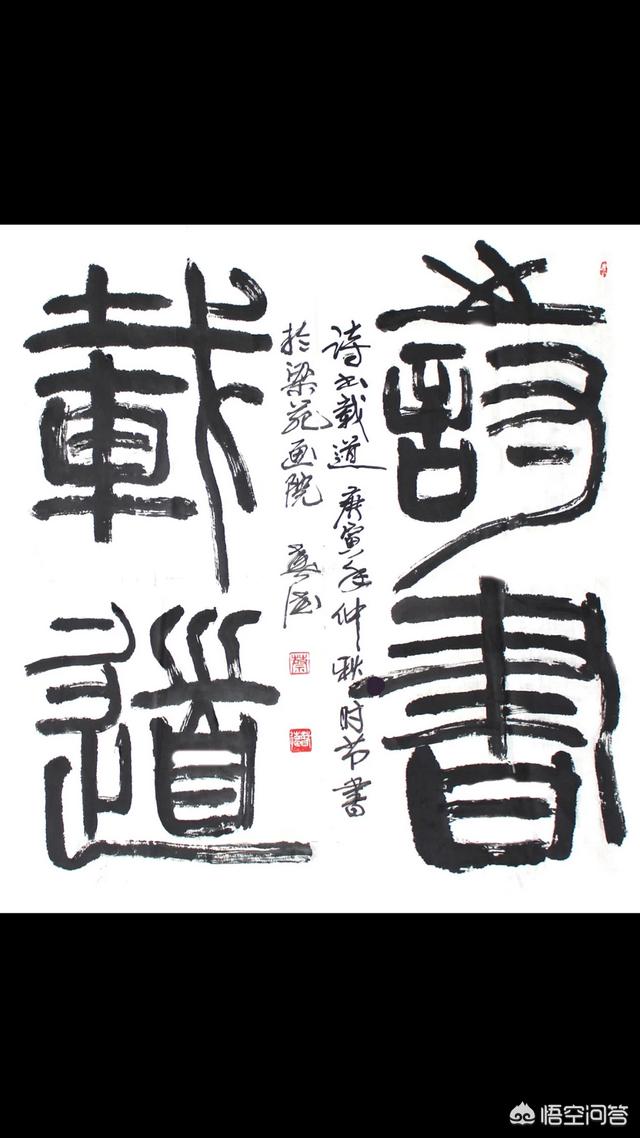 詩書
載道
诗书载道 庚寅年仲秋时节書
於梁苑画院
蔡
悟空问答